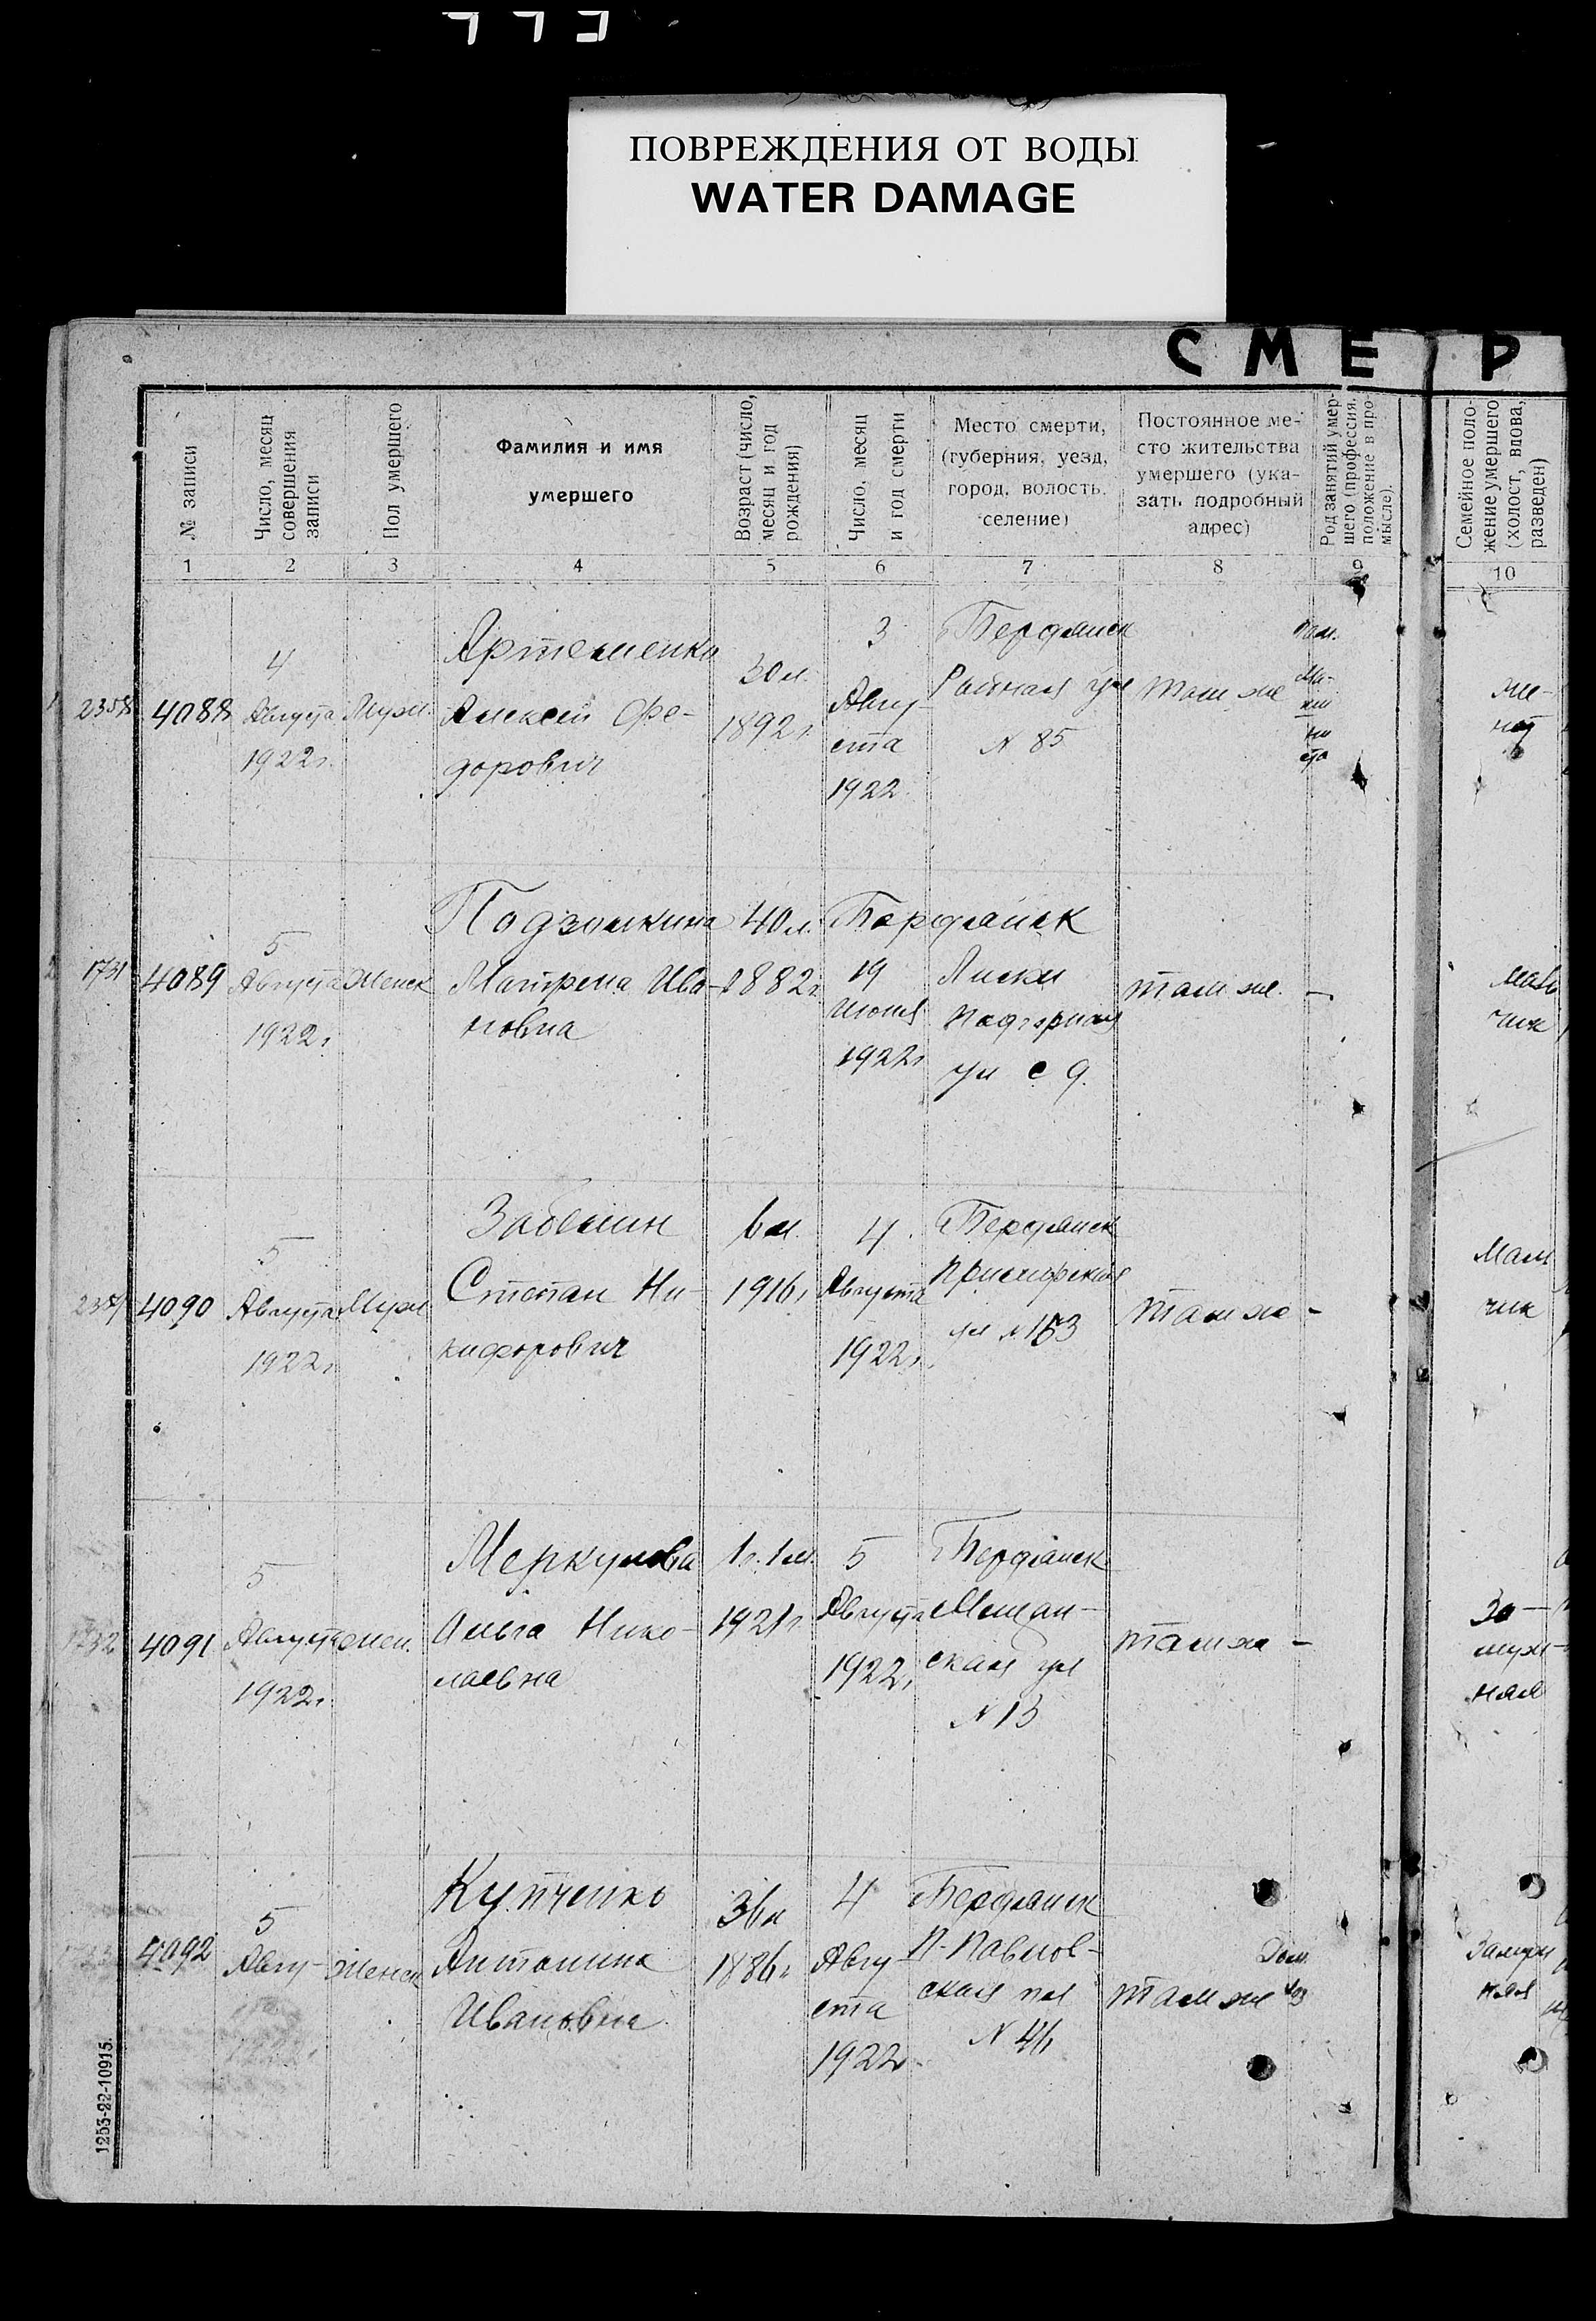 ПОВРЕЖДЕНИЯ ОТ ВОДЫ
WATER DAMAGE
СМЕР
№ записи
Число, месяц
совершения
записи
Пол умершего
Фамилия и имя
умершего
Возраст (число,
месяц и год
рождения)
Число, месяц
и год смерти
Место смерти,
(губерния, уезд,
город, волость,
селение)
Постоянное ме-
сто жительства
умершего (ука-
зать подробный
адрес)
Род занятий умер-
шего (профессия,
положение в про-
мысле).
Семейное поло-
жение умершего
(холост, вдова,
разведен)
1 2 3 4 5 6 7 8 9 10
4088
4
Августа
1922г.
Муж.
Артеменко
Алексей Фе-
дорович
30 л.
1892г.
3
Авгу
ста
1922
Бердянск
ул
N 85
там же
же-
нат
1731
4089
5
Августа
1922г.
Женск
Матрена Ива-
новна
40 л.
1882г
19
июня
1922г
Бердянск
Лиски
Нагорная
ул с 9.
там же.
–
4090
5
Августа
1922г
Муж
Степан Ни-
кифорович
6 л.
1916г
4
Августа
1922г.
Бердянск
N 153
там же
–
Маль
чик
1732
4091
5
Августа
1922г.
жен.
Меркулова
Ольга Нико-
лаевна
1г. 1м.
1921г
5
Августа
1922г
Бердянск
Мещан-
ская ул
N 13
там же
–
За-
муж-
няя
4092
5
Авгу-
Женск
Купченко
Антонина
Ивановна
36 л
1886г
4
Авгу
ста
1922г.
Бердянск
П-Павлов-
ская
N 46
там же
Дом.
хоз
Замуж
няя
1253-22-10915.